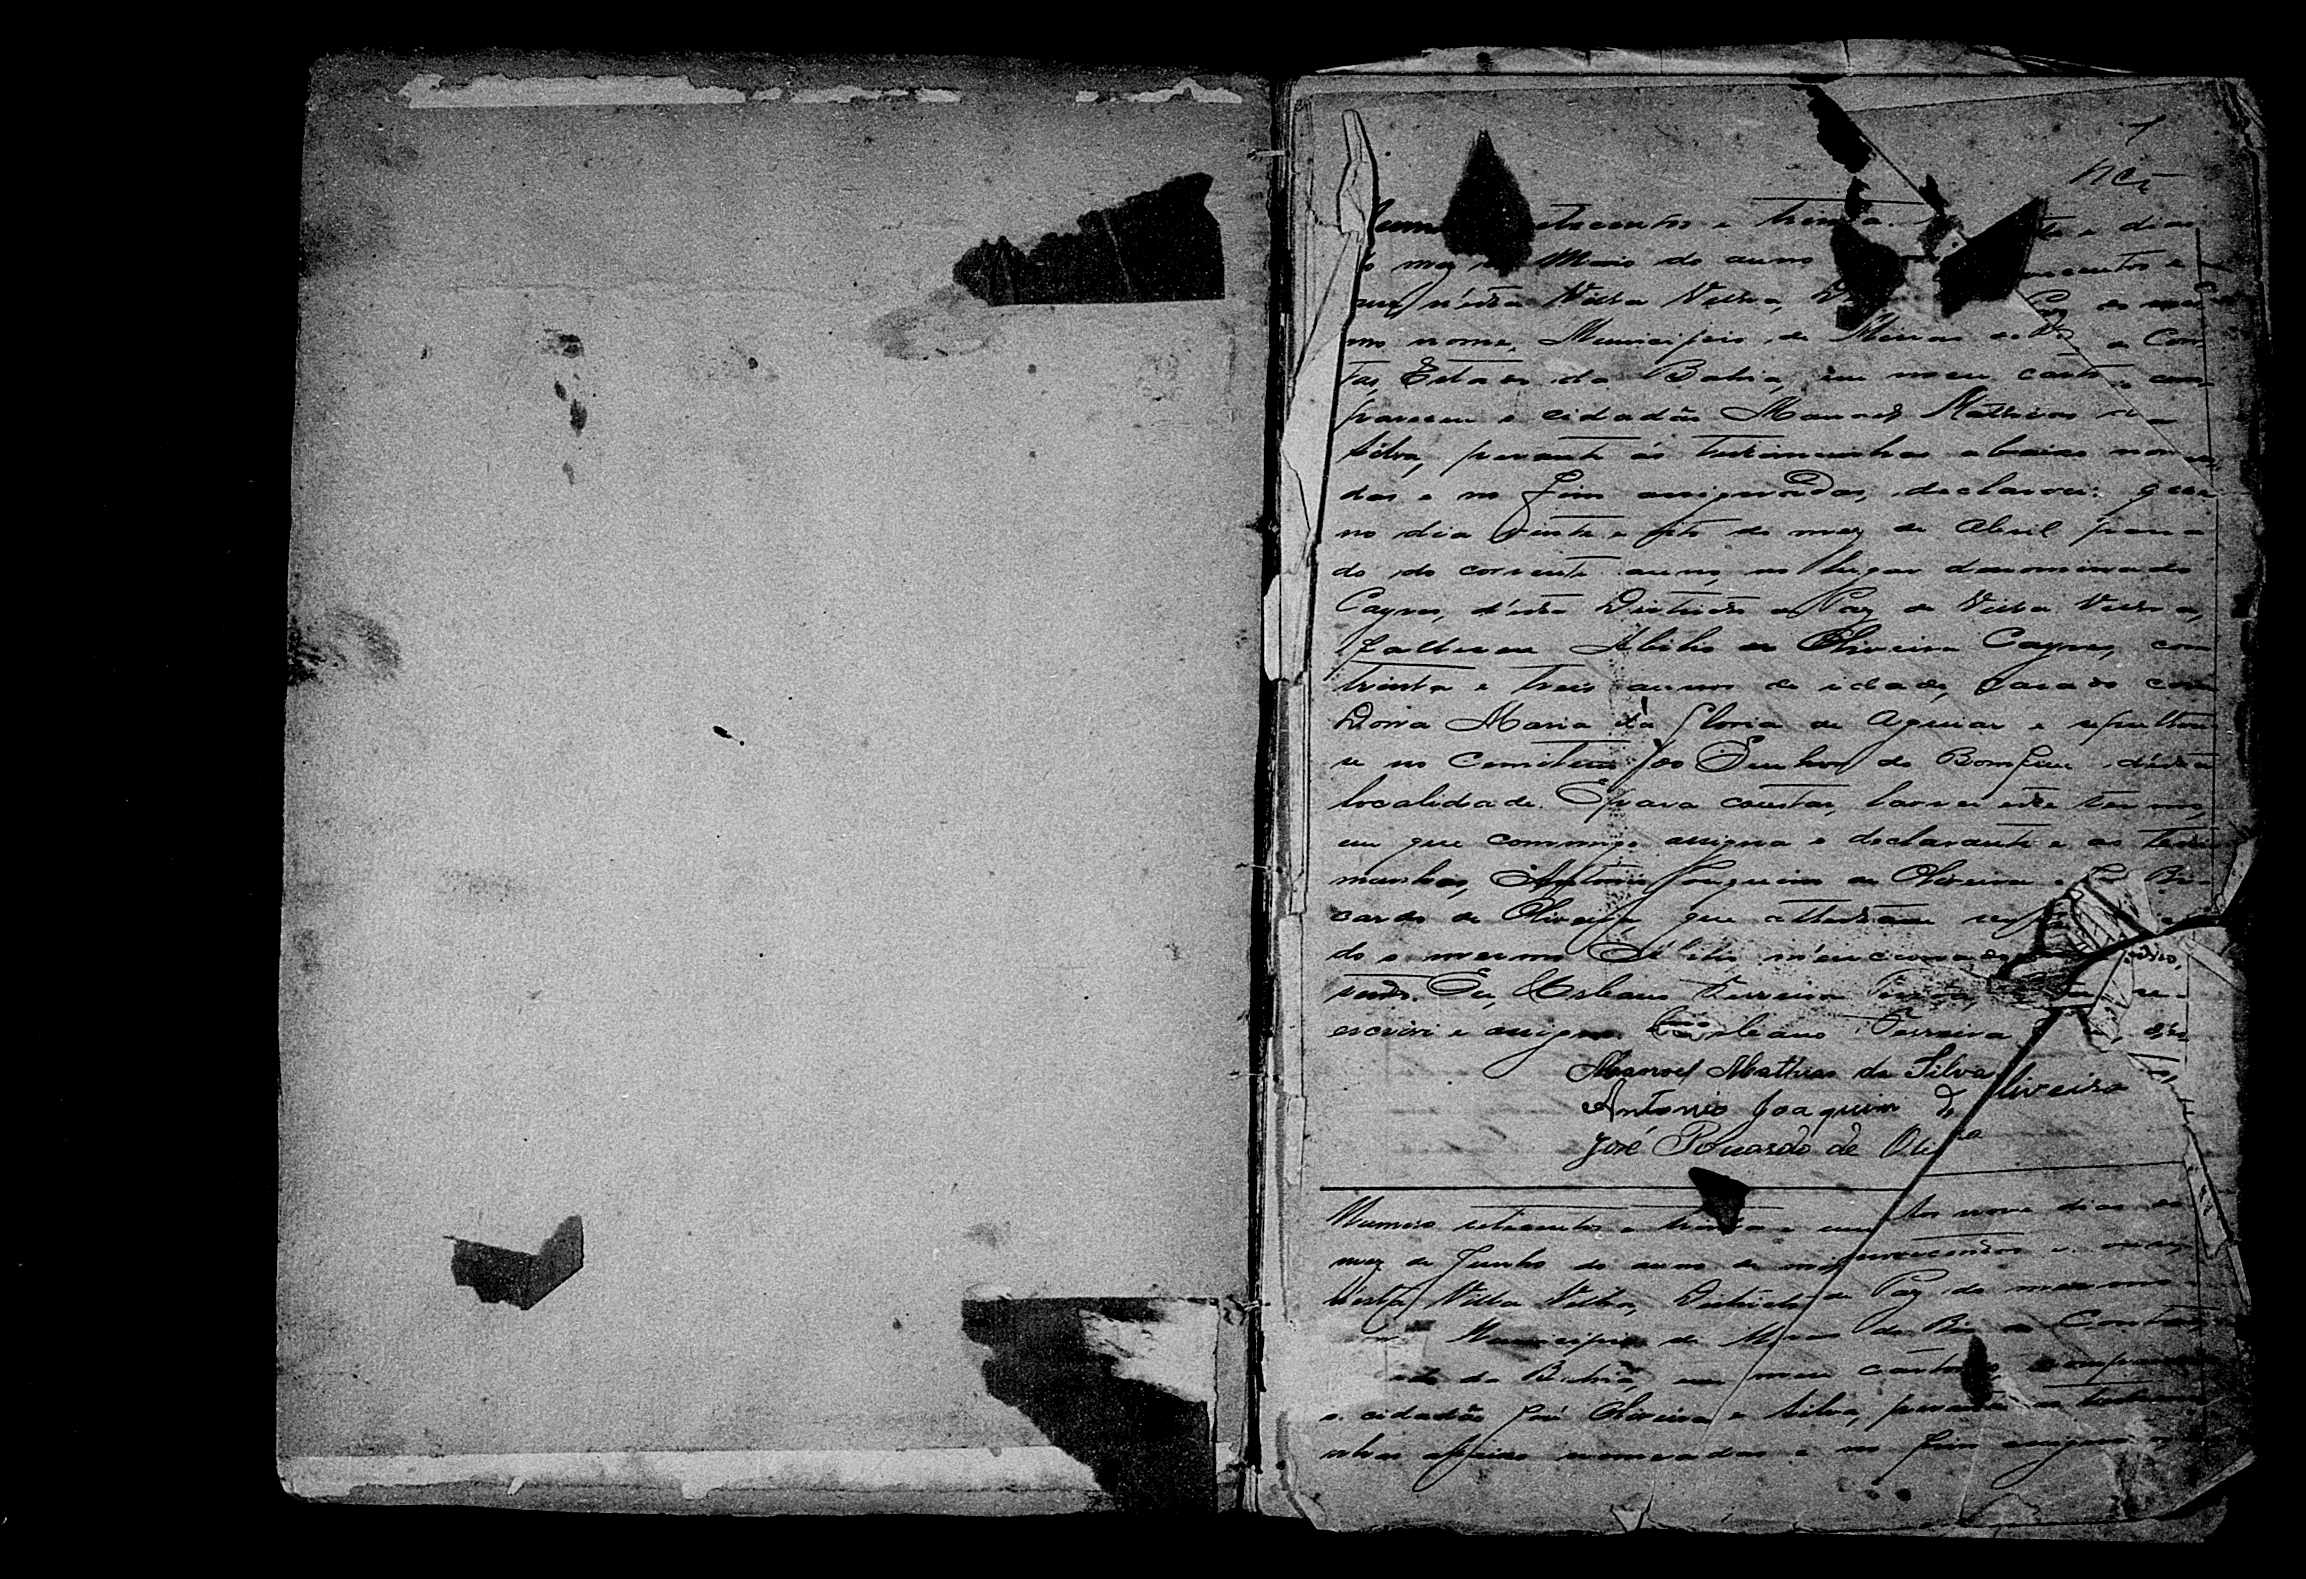 1
e trenta
mez Maio do anno
n'esta Villa Velha,
mo nome, Municipio de Minas do Rio de Con-
tas, Estado da Bahia, em meu cartorio com-
pareceu o cidadão Manoel Mathias da
Silva, perante ás testimunhas abaixo nomea-
das e no fim assignadas, declarou: que
no dia vinte e oito do mez de Abril passa-
do do corrente anno, no lugar denominado
Cayres, d'este Districto de Paz de Villa Velha,
falleceu Abilio de Oliveira Cayres, com
trinta e tres annos de idade, casado com
Dona Maria da Gloria de Aguiar e sepultou-
se no Cemiterio do Senhor do Bomfim d'esta
localidade. E para constar, lavrei este termo,
em que commigo assigna o declarante e as testi-
munhas, Antonio Joaquim de Oliveira e José Ri-
cardo de Oliveira, que attestam
do o mesmo Abilio mencionado
Eu, Ferreira
escrivi e assigno. Ferreira
Manoel Mathias da Silva
Antonio Joaquim de Oliveira
José Ricardo de Oliveira
Numero setecentos e trinta e um Aos nove dias do
mez de Junho do anno de mil novecentos e onze,
n'esta Villa Velha, Districto de Paz do mesmo
Municipio de Minas do Rio de Contas,
da Bahia, em meu cartorio, compareceu
o cidadão José Oliveira e Silva, perante as testimu-
nhas abaixo nomeadas e no fim assignadas